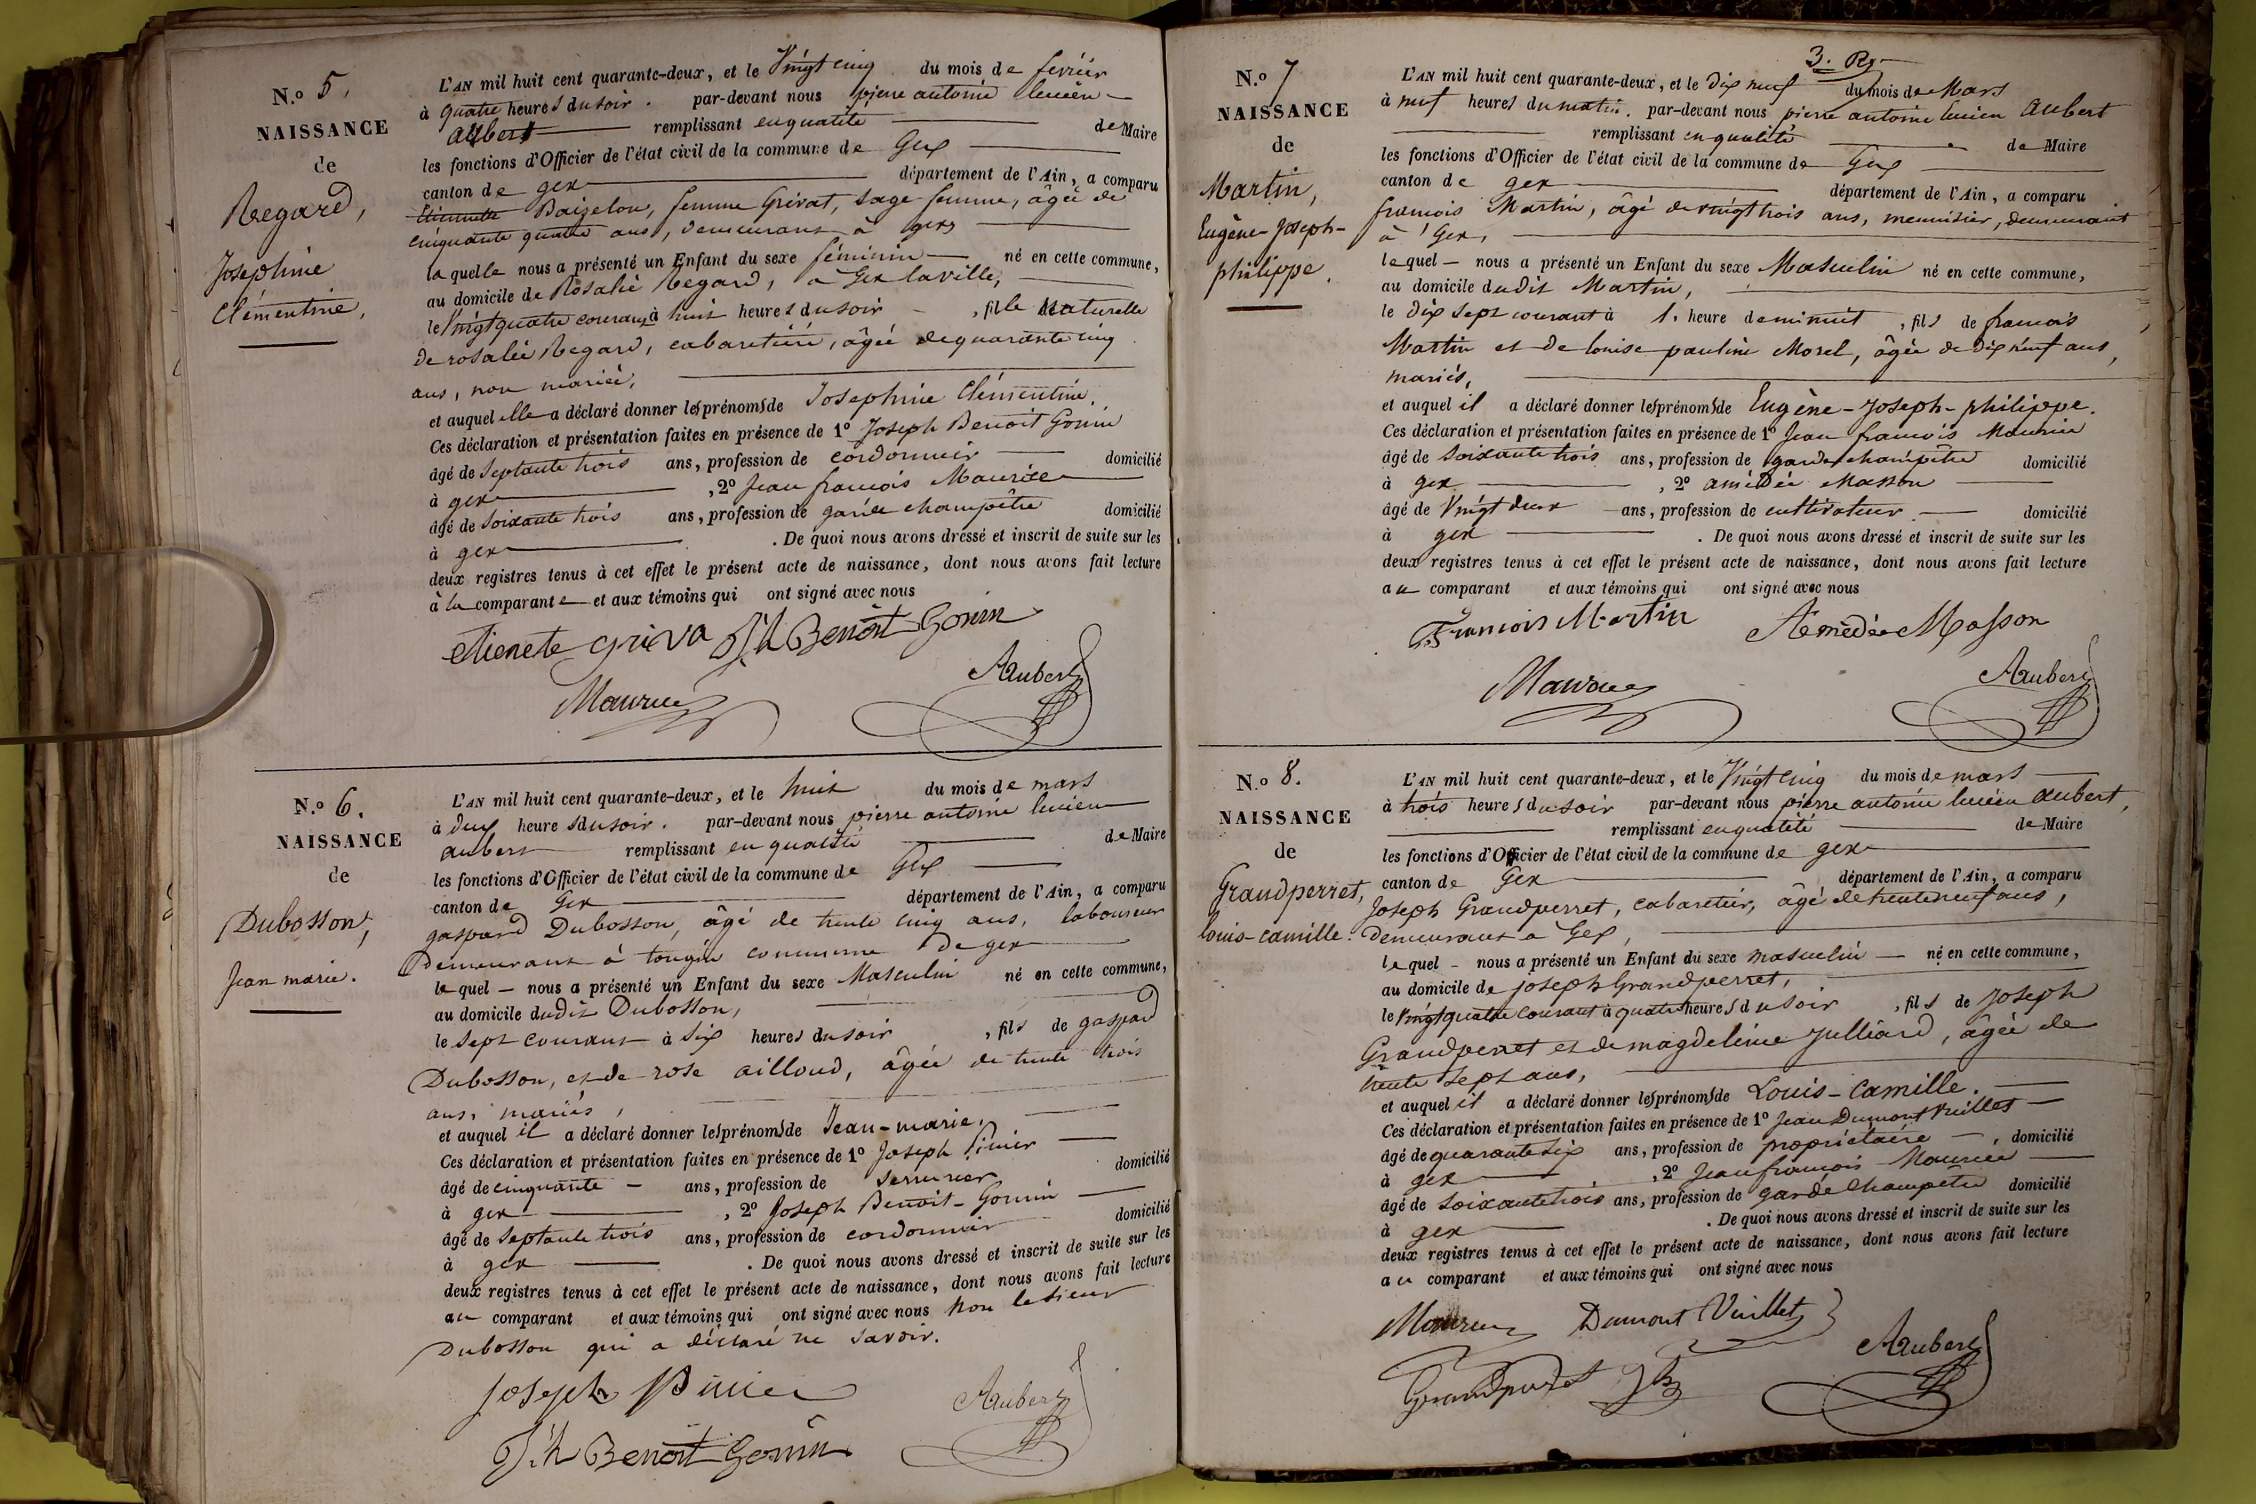 N.º 5.
NAISSANCE
de
Regard,
Josephine
Clémentine,
L'AN mil huit cent quarante-deux, et le Vingt cinq du mois de fevrier
à quatre heures du soir. par-devant nous pierre antoine lucien
aubert remplissant en qualité de Maire
les fonctions d'Officier de l'état civil de la commune de Gex
canton de gex département de l'Ain, a comparu
Etiennette Baizelon, femme Grivat, sage femme, âgée de
cinquante quatre ans, demeurant à gex
la quelle nous a présenté un Enfant du sexe féminin né en cette commune,
au domicile de Rosalie Regard, à Gex la ville,
le Vingt quatre courant à huit heures du soir, fille Naturelle
de rosalie Regard, cabaretière, âgée de quarante cinq
ans, non mariée,
et auquel elle a déclaré donner les prénoms de Josephine Clémentine.
Ces déclaration et présentation faites en présence de 1º Joseph Benoit Gonin
âgé de septante trois ans, profession de cordonnier domicilié
à gex, 2º Jean françois Maurice
âgé de soixante trois ans, profession de garde champêtre domicilié
à gex. De quoi nous avons dressé et inscrit de suite sur les
deux registres tenus à cet effet le présent acte de naissance, dont nous avons fait lecture
à la comparante et aux témoins qui ont signé avec nous
etienete griva Jh Benoit Gonin
Maurice Aubert
N.º 6.
NAISSANCE
de
Dubosson,
Jean marie.
L'AN mil huit cent quarante-deux, et le huit du mois de mars
à deux heures du soir. par-devant nous pierre antoine lucien
aubert remplissant en qualité de Maire
les fonctions d'Officier de l'état civil de la commune de Gex
canton de Gex département de l'Ain, a comparu
gaspard Dubosson, âgé de trente cinq ans, laboureur
demeurant à tougin commune de gex
le quel — nous a présenté un Enfant du sexe Masculin né en cette commune,
au domicile dudit Dubosson,
le sept courant à six heures du soir, fils de gaspard
Dubosson, et de rose ailloud, âgée de trente trois
ans, mariés,
et auquel il a déclaré donner les prénoms de Jean-marie.
Ces déclaration et présentation faites en présence de 1º Joseph Pinier
âgé de cinquante — ans, profession de serrurier domicilié
à gex, 2º Joseph Benoit-Gonnin
âgé de septante trois ans, profession de cordonnier domicilié
à gex. De quoi nous avons dressé et inscrit de suite sur les
deux registres tenus à cet effet le présent acte de naissance, dont nous avons fait lecture
au comparant et aux témoins qui ont signé avec nous non le sieur
Dubosson qui a déclaré ne savoir.
Joseph Aubert
J.h Benoit Gonin
3. R.
N.º 7
NAISSANCE
de
Martin,
Eugène-Joseph-
philippe.
L'AN mil huit cent quarante-deux, et le dix neuf du mois de Mars
à neuf heures du matin. par-devant nous pierre antoine lucien aubert
remplissant en qualité de Maire
les fonctions d'Officier de l'état civil de la commune de Gex
canton de gex département de l'Ain, a comparu
françois Martin, âgé de vingt trois ans, menuisier, demeurant
à Gex,
le quel — nous a présenté un Enfant du sexe Masculin né en cette commune,
au domicile dudit Martin,
le dix sept courant à 1. heure de minuit, fils de françois
Martin et de louise pauline Morel, âgée de dix neuf ans,
mariés,
et auquel il a déclaré donner les prénoms de Eugène-Joseph-philippe.
Ces déclaration et présentation faites en présence de 1º Jean françois Maurice
âgé de soixante trois ans, profession de garde champêtre domicilié
à gex, 2º amédée Masson
âgé de Vingt deux ans, profession de cultivateur domicilié
à gex. De quoi nous avons dressé et inscrit de suite sur les
deux registres tenus à cet effet le présent acte de naissance, dont nous avons fait lecture
au comparant et aux témoins qui ont signé avec nous
François Martin Amédée Masson
Maurice Aubert
N.º 8.
NAISSANCE
de
Grandperret,
louis-camille.
L'AN mil huit cent quarante-deux, et le Vingt cinq du mois de mars
à trois heures du soir par-devant nous pierre antoine lucien aubert,
remplissant en qualité de Maire
les fonctions d'Officier de l'état civil de la commune de gex
canton de Gex département de l'Ain, a comparu
Joseph Grandperret, cabaretier, âgé de trente neuf ans,
demeurant à Gex,
le quel — nous a présenté un Enfant du sexe masculin né en cette commune,
au domicile de joseph Grandperret,
le Vingt quatre courant à quatre heures du soir, fils de Joseph
Grandperret et de magdeleine Julliard, âgée de
trente sept ans,
et auquel il a déclaré donner les prénoms de Louis-Camille.
Ces déclaration et présentation faites en présence de 1º Jean Dumont Vuillet
âgé de quarante six ans, profession de propriétaire, domicilié
à gex, 2º Jean françois Maurice
âgé de soixante trois ans, profession de garde champêtre domicilié
à gex. De quoi nous avons dressé et inscrit de suite sur les
deux registres tenus à cet effet le présent acte de naissance, dont nous avons fait lecture
au comparant et aux témoins qui ont signé avec nous
Maurice Dumont Vuillet Aubert
Grandperret Jh